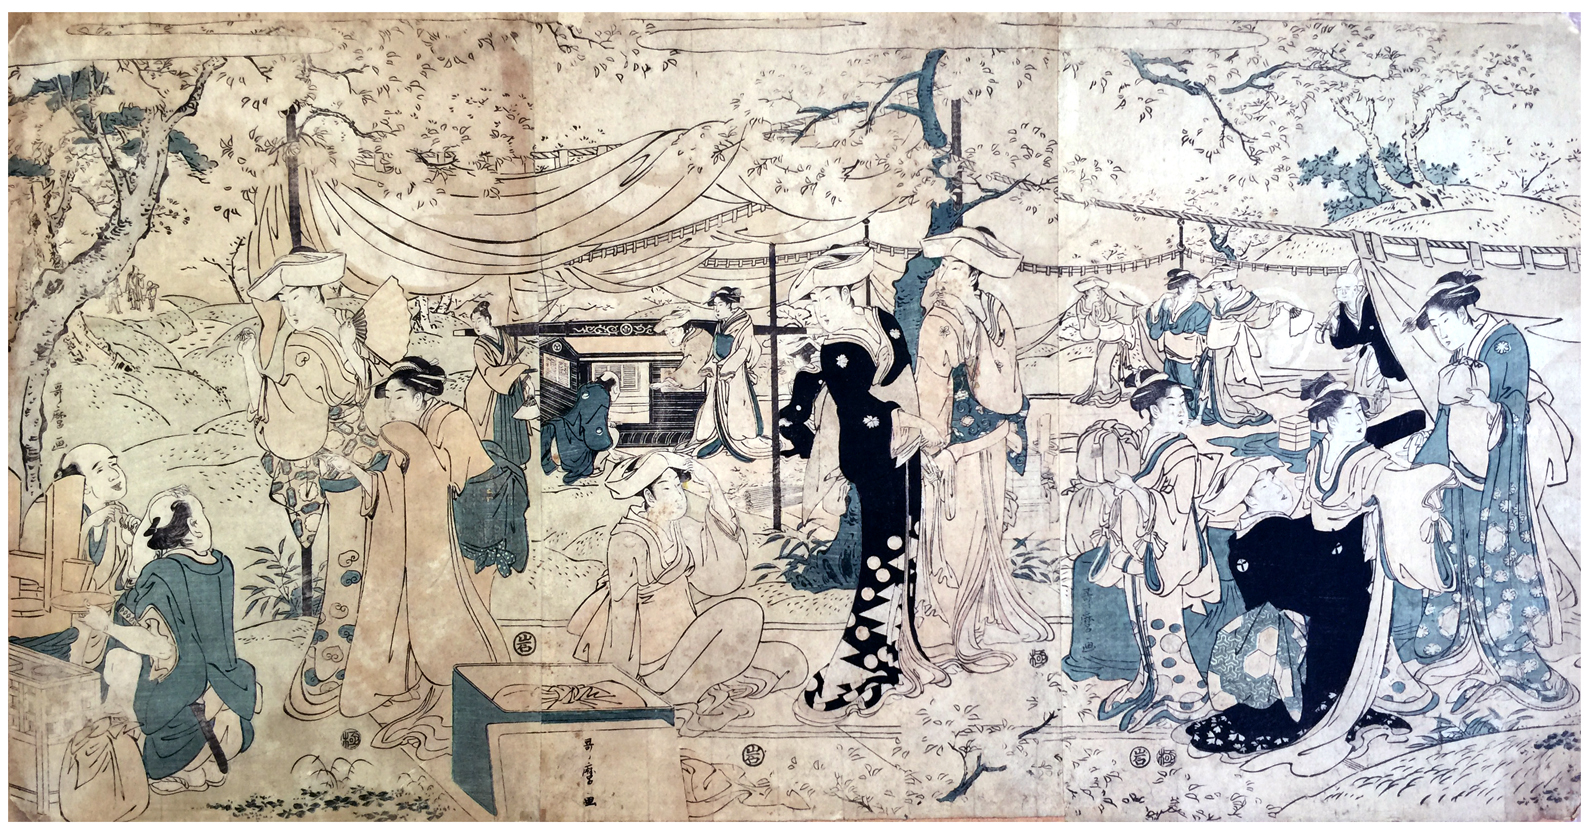 哥麿画
岩
極
哥麿画
岩
極
哥麿画
岩
極